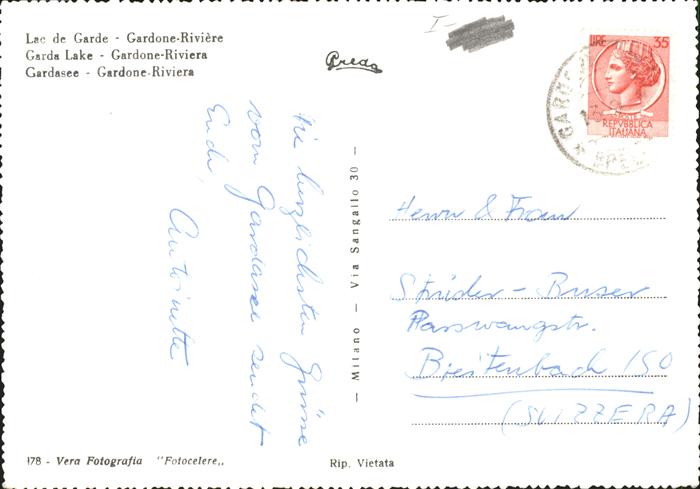 Lac de Garde - Gardone-Rivière
Garda Lake - Gardone-Riviera
Gardasee - Gardone-Riviera
Preda
I-
LIRE 35
POSTE
REPVBBLICA
ITALIANA
Die herzlichsten Grüsse
vom Gardasee sendet
Euch
Antoinette
— Milano — Via Sangallo 30 —
Herrn & Frau
Strider - Buser
Passwangstr.
Breitenbach /SO
(SVIZZERA)
178 - Vera Fotografia "Fotocelere„
Rip. Vietata